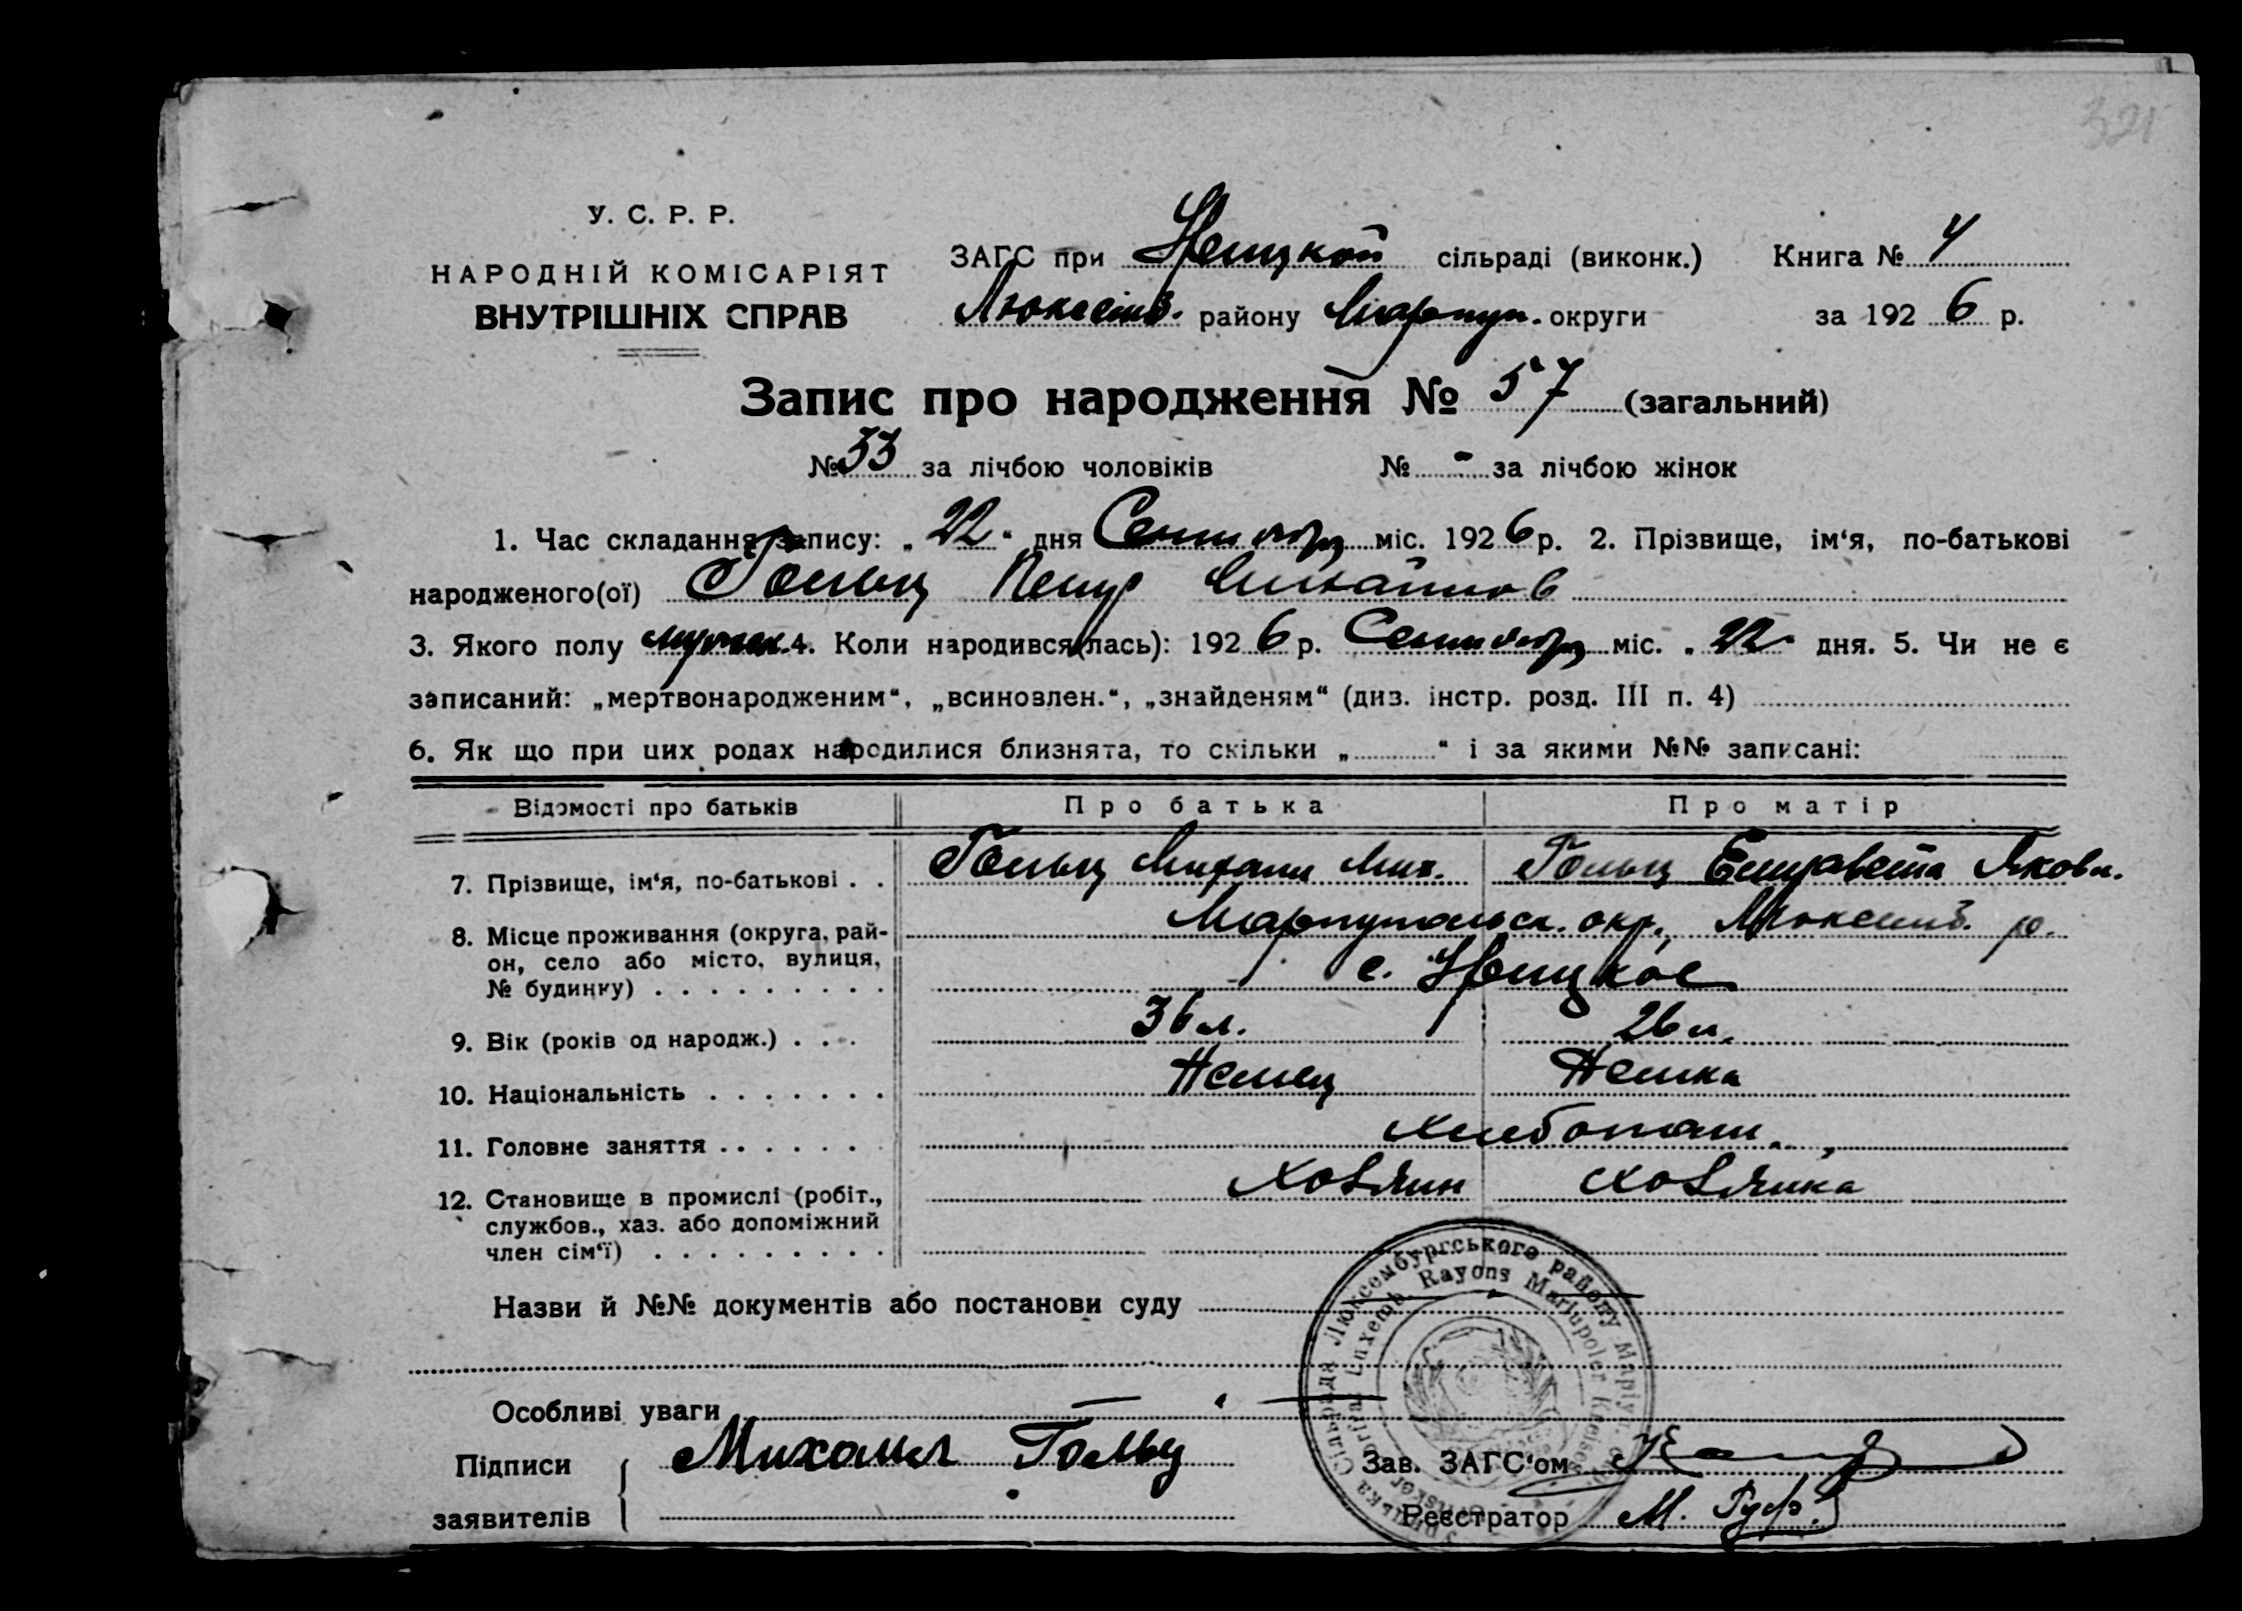 321
У. С. Р. Р.
НАРОДНІЙ КОМІСАРІЯТ
ВНУТРІШНІХ СПРАВ
ЗАГС при Урицкой сільраді (виконк.) Книга № 4
Люксемб. району Марпуп. округи за 1926 р.
Запис про народження № 57 (загальний)
№ 33 за лічбою чоловіків № - за лічбою жінок
1. Час складання запису: „22“ дня Сентября міс. 1926 р. 2. Прізвище, ім‘я, по-батькові
народженого(ої) Гольц Петр Михайлов
3. Якого полу мужск. 4. Коли народився(лась): 1926 р. Сентября міс. „22“ дня. 5. Чи не є
записаний: „мертвонародженим“, „всиновлен.“, „знайденям“ (див. інстр. розд. III п. 4)
6. Як що при цих родах народилися близнята, то скільки „ “ і за якими №№ записані:
Відомості про батьків Про батька Про матір
7. Прізвище, ім‘я, по-батькові . . Гольц Михаил Мих. Гольц Елизавета Яковл.
8. Місце проживання (округа, рай-
он, село або місто, вулиця,
№ будинку) . . . . . . . . .
Марпупольск. окр., Люксемб. р.
с. Урицкое
9. Вік (років од народж.) . . . 36 л. 26 л.
10. Національність . . . . . . . Немец Немка
11. Головне заняття . . . . . . хлебопаш.
12. Становище в промислі (робіт.,
службов., хаз. або допоміжний
член сім‘ї) . . . . . . . . .
Хозяин Хозяика
Назви й №№ документів або постанови суду
Особливі уваги
Підписи
заявителів
Михаил Гольц
Зав. ЗАГС‘ом
Реєстратор М.
Сільрада Люксембургського району Маріуп.
Luxemb. Rayons Mariupoler Kreises